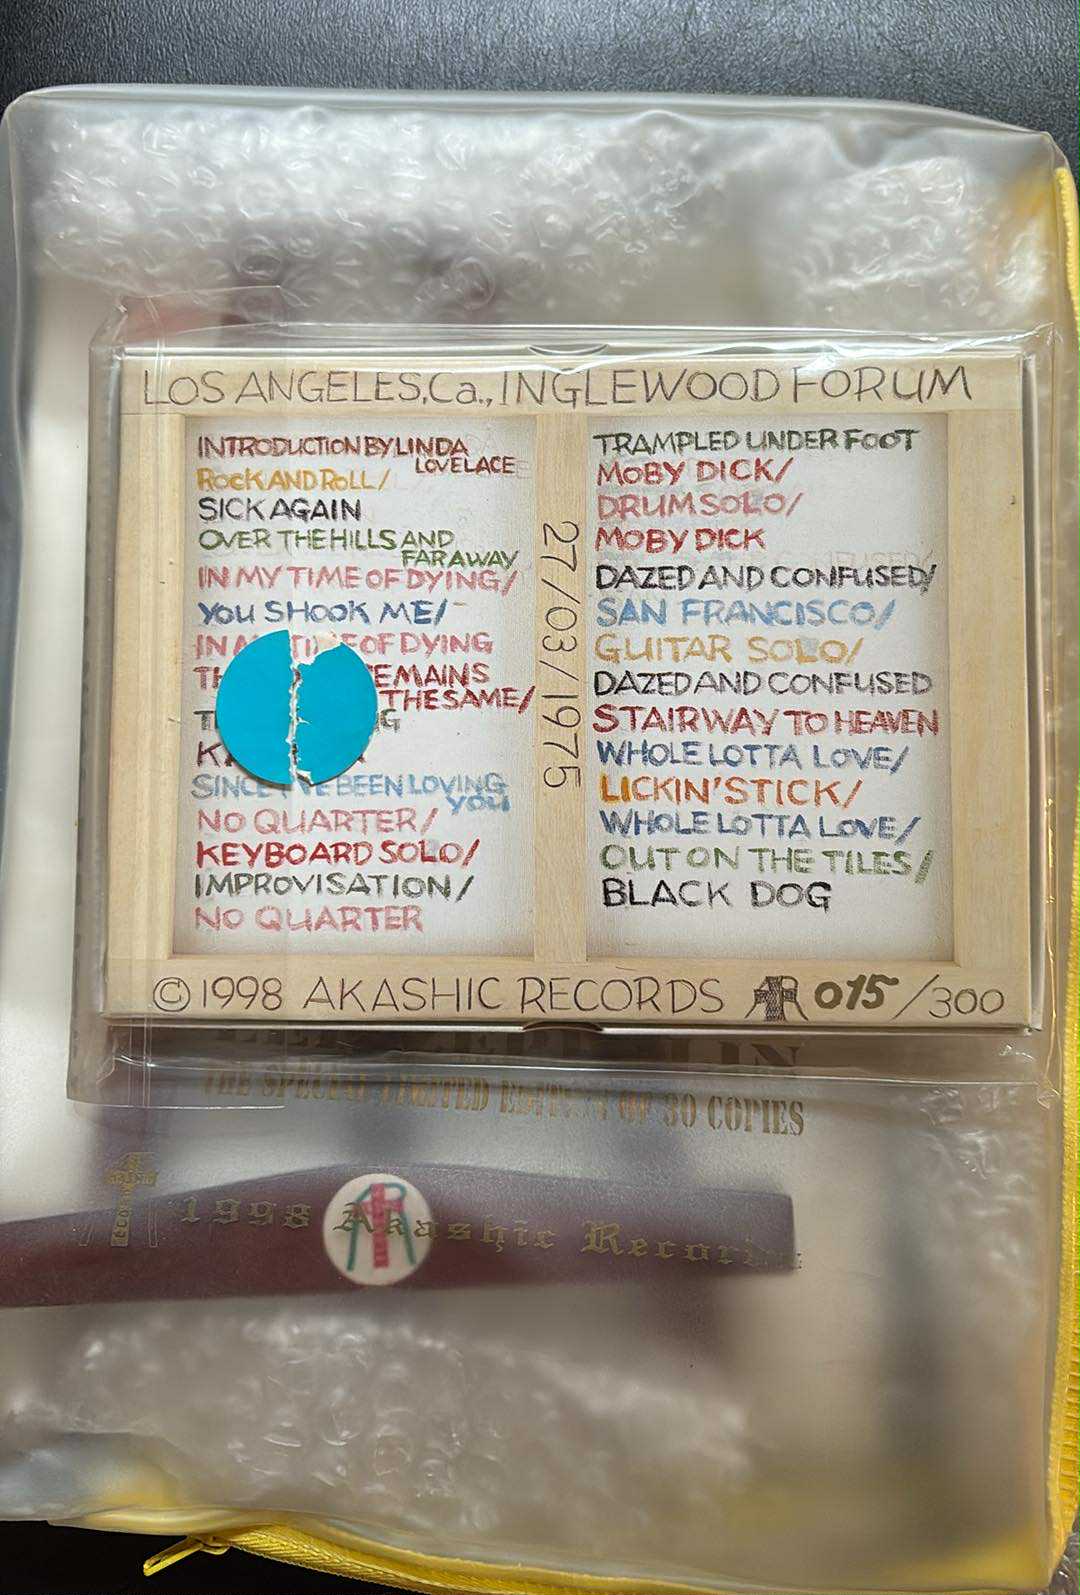 LOS ANGELES,Ca., INGLEWOOD FORUM
INTRODUCTION BY LINDA
LOVELACE
ROCK AND ROLL/
SICK AGAIN
OVER THE HILLS AND
FAR AWAY
IN MY TIME OF DYING/
YOU SHOOK ME/
IN OF DYING
THE SAME/
SINCE BEEN LOVING
YOU
NO QUARTER/
KEYBOARD SOLO/
IMPROVISATION/
NO QUARTER
27/03/1975
TRAMPLED UNDER FOOT
MOBY DICK/
DRUM SOLO/
MOBY DICK
DAZED AND CONFUSED/
SAN FRANCISCO/
GUITAR SOLO/
DAZED AND CONFUSED
STAIRWAY TO HEAVEN
WHOLE LOTTA LOVE/
LICKIN' STICK/
WHOLE LOTTA LOVE/
OUT ON THE TILES/
BLACK DOG
© 1998 AKASHIC RECORDS AR 015/300
THE SPECIAL LIMITED EDITION OF 30 COPIES
1998 Akashic Records